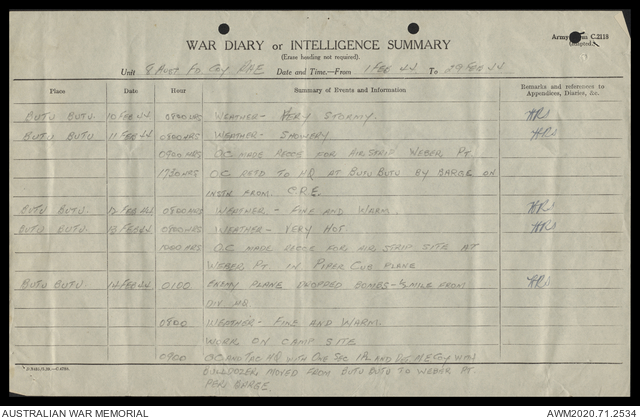 WAR DIARY or INTELLIGENCE SUMMARY
Army Form C.2118
(Erase heading not required).
Unit 8 AUST FD COY RAE Date and Time.—From 1 FEB 44 To 29 FEB 44
Place Date Hour Summary of Events and Information Remarks and references to Appendices, Diaries, &c.
BUTU BUTU. 10 FEB 44 0800 HRS WEATHER - VERY STORMY.
BUTU BUTU 11 FEB 44 0800 HRS WEATHER - SHOWERY
0900 HRS OC MADE RECCE FOR AIR STRIP WEBER PT.
1730 HRS OC RETD TO HQ AT BUTU BUTU BY BARGE ON
INSTR FROM. C.R.E.
BUTU BUTU. 12 FEB 44 0800 HRS WEATHER - FINE AND WARM.
BUTU BUTU. 13 FEB 44 0800 HRS WEATHER - VERY HOT
1000 HRS OC MADE RECCE FOR AIR STRIP SITE AT
WEBER PT. IN PIPER CUB PLANE
BUTU BUTU. 14 FEB 44 0100 ENEMY PLANE DROPPED BOMBS - ½ MILE FROM
DIV HQ
0800 WEATHER - FINE AND WARM.
WORK ON CAMP SITE
0900 OC AND TAC HQ WITH ONE SEC 1 PL AND DET. MECH WITH
BULLDOZER, MOVED FROM BUTU BUTU TO WEBER PT.
PER BARGE.
AUSTRALIAN WAR MEMORIAL
AWM2020.71.2534